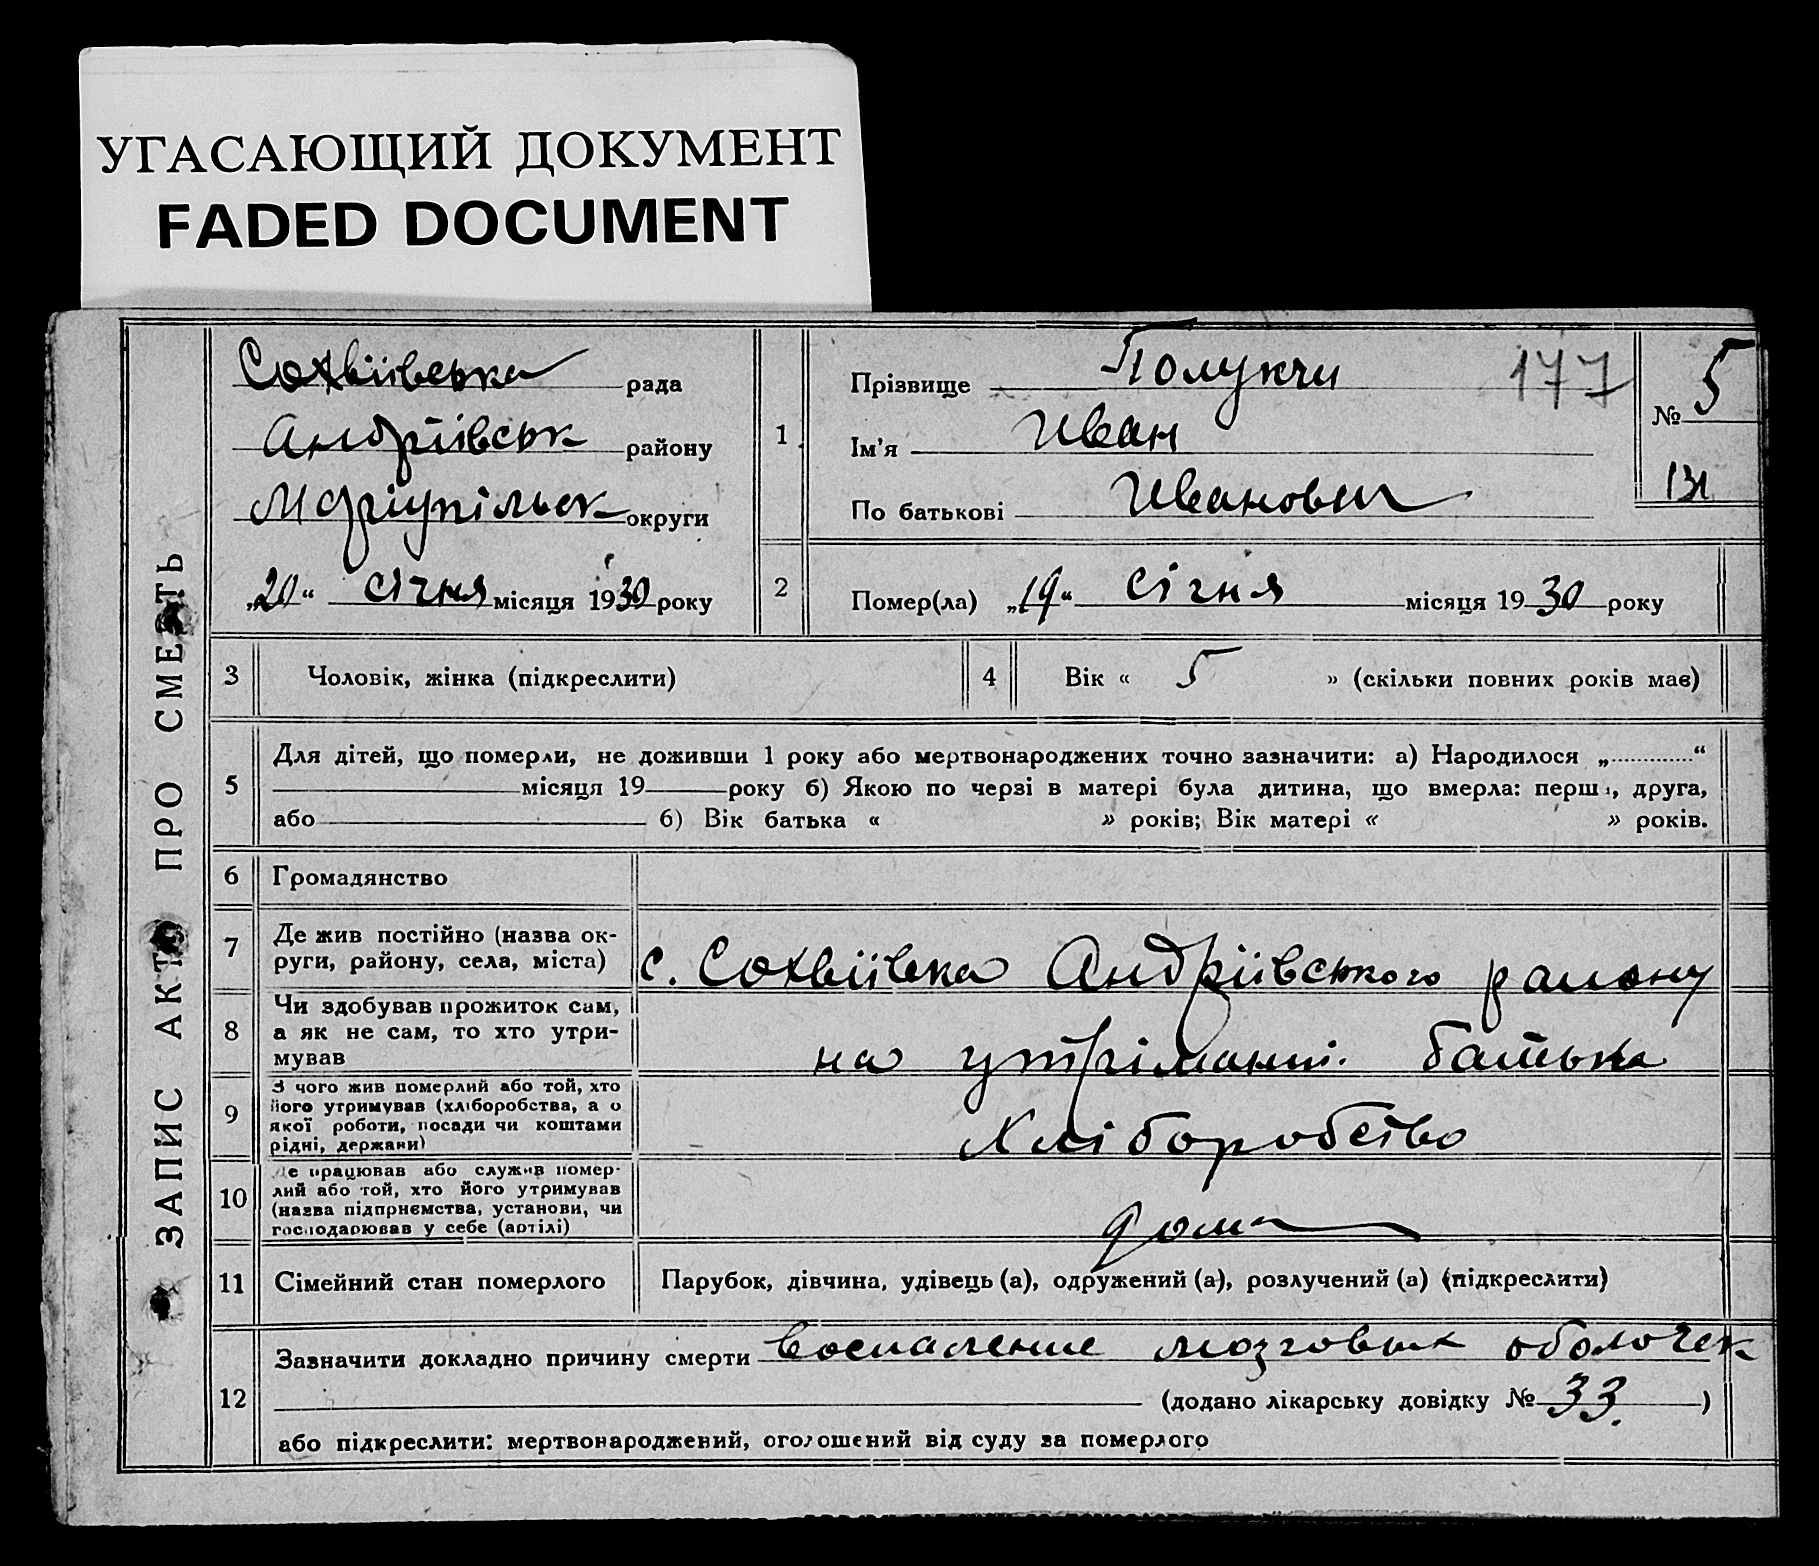 УГАСАЮЩИЙ ДОКУМЕНТ
FADED DOCUMENT
ЗАПИС АКТІВ ПРО СМЕРТЬ
Сохвіївська рада
Андріївськ району
Маріупільськ округи
„20“ січня місяця 1930 року
1
Прізвище Полукчи 177
Ім'я Иван
По батькові Иванович
№ 5
2
Помер(ла) „19“ січня місяця 1930 року
3 Чоловік, жінка (підкреслити)
4 Вік « 5 » (скільки повних років має)
5 Для дітей, що померли, не доживши 1 року або мертвонароджених точно зазначити: а) Народилося „.............“
місяця 19 року б) Якою по черзі в матері була дитина, що вмерла: перша, друга,
або б) Вік батька « » років; Вік матері « » років.
6 Громадянство
7 Де жив постійно (назва ок-
руги, району, села, міста)
с. Сохвіївка Андріївського району
8 Чи здобував прожиток сам,
а як не сам, то хто утри-
мував
на утріманні батька
9 З чого жив померлий або той, хто
його утримував (хліборобства, а о
якої роботи, посади чи коштами
рідні, держави)
Хліборобство
10 Де працював або служив помер-
лий або той, хто його утримував
(назва підприємства, установи, чи
господарював у себе (артілі)
дома
11 Сімейний стан померлого
Парубок, дівчина, удівець (а), одружений (а), розлучений (а) (підкреслити)
12 Зазначити докладно причину смерти воспаление мозговых оболочек
(додано лікарську довідку № 33. )
або підкреслити: мертвонароджений, оголошений від суду за померлого